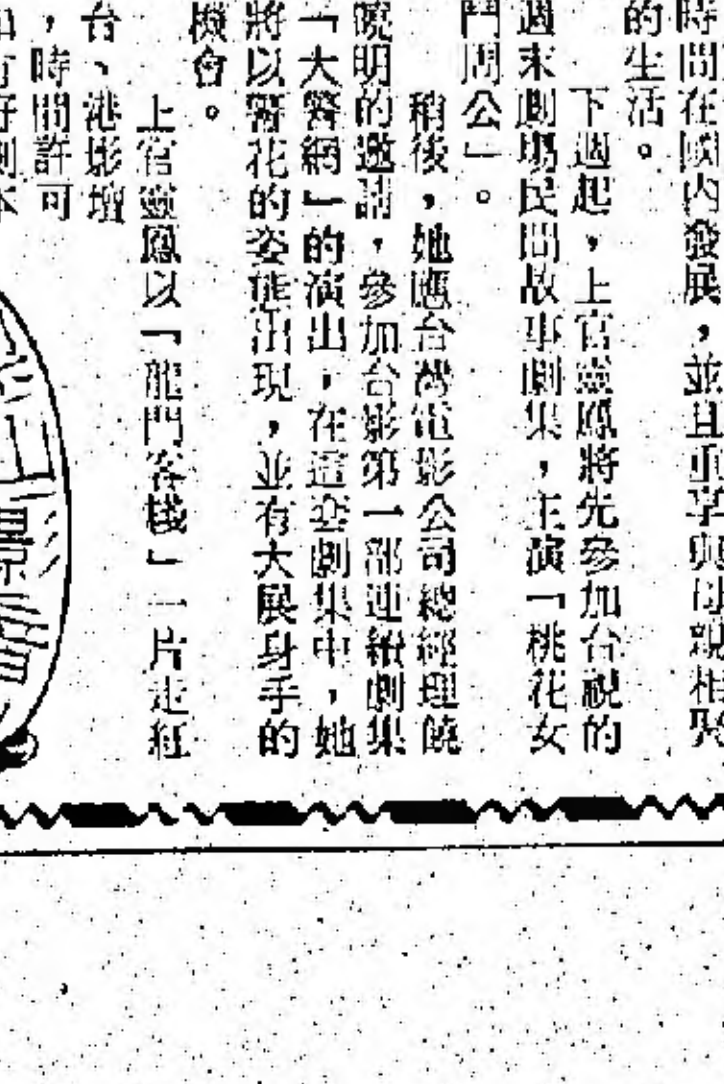 時間在國內發展，並且重享與母親相聚
的生活。
下週起，上官靈鳳將先參加台視的
週末劇場民間故事劇集，主演「桃花女
鬥周公」。
稍後，她應台灣電影公司總經理饒
曉明的邀請，參加台影第一部連續劇集
「大警網」的演出，在這套劇集中，她
將以警花的姿態出現，並有大展身手的
機會。
上官靈鳳以「龍門客棧」一片走紅
台、港影壇
，時間許可